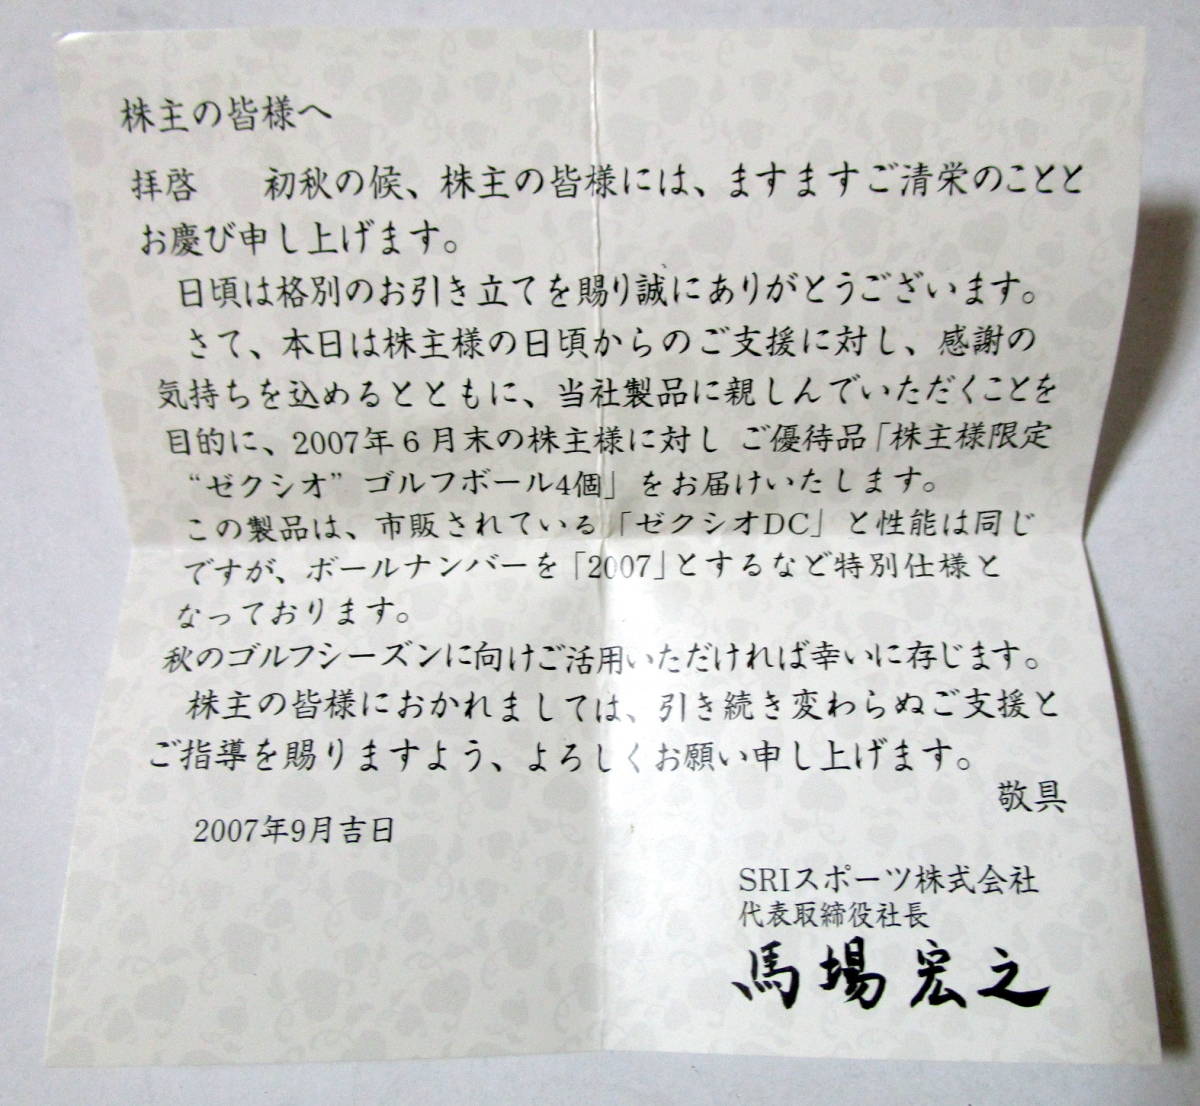 株主の皆様へ
拝啓　初秋の候、株主の皆様には、ますますご清栄のことと
お慶び申し上げます。
日頃は格別のお引き立てを賜り誠にありがとうございます。
さて、本日は株主様の日頃からのご支援に対し、感謝の
気持ちを込めるとともに、当社製品に親しんでいただくことを
目的に、2007年６月末の株主様に対し ご優待品「株主様限定
“ゼクシオ” ゴルフボール4個」をお届けいたします。
この製品は、市販されている「ゼクシオDC」と性能は同じ
ですが、ボールナンバーを「2007」とするなど特別仕様と
なっております。
秋のゴルフシーズンに向けご活用いただければ幸いに存じます。
株主の皆様におかれましては、引き続き変わらぬご支援と
ご指導を賜りますよう、よろしくお願い申し上げます。
敬具
2007年9月吉日
SRIスポーツ株式会社
代表取締役社長
馬場宏之